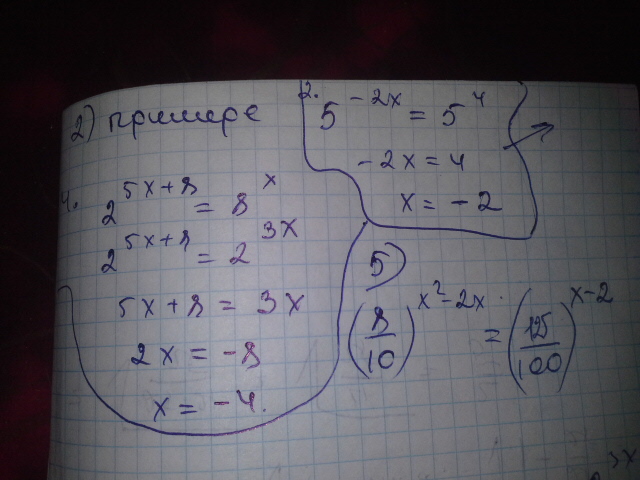 2) примере
2.
5^{-2x} = 5^4
-2x = 4
x = -2
4.
2^{5x+8} = 8^x
2^{5x+8} = 2^{3x}
5x+8 = 3x
2x = -8
x = -4.
5)
(8/10)^{x²-2x} = (125/100)^{x-2}
3x